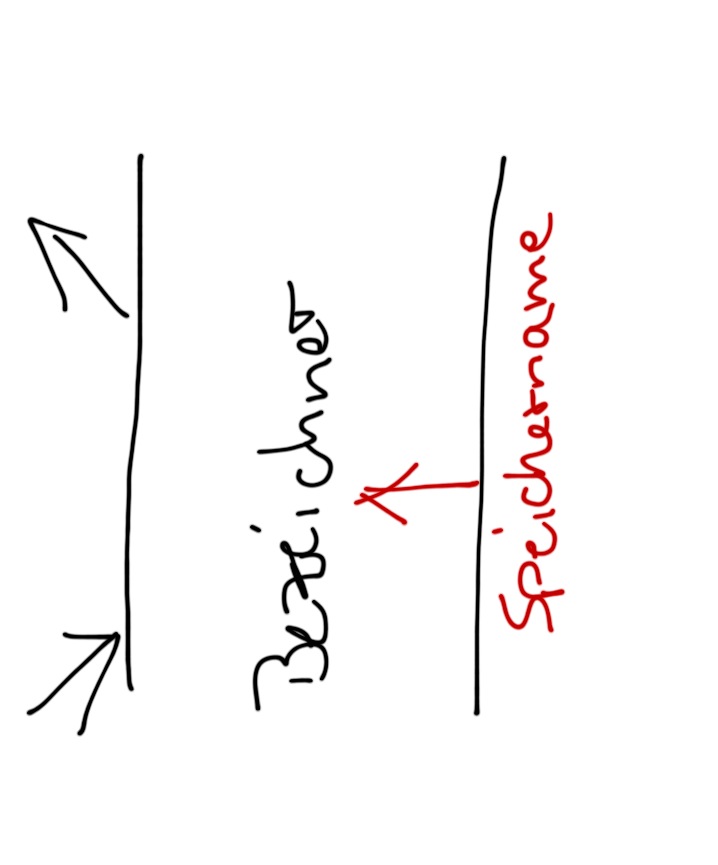 Bezeichner
Speichername